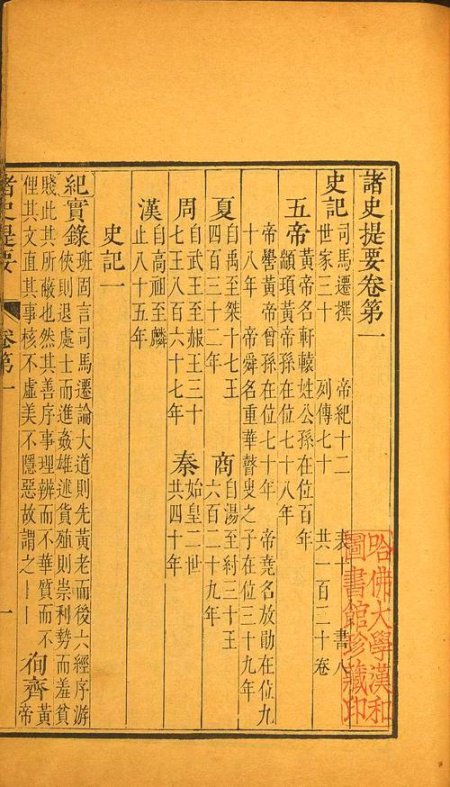 諸史提要卷第一
史記 司馬遷撰 帝紀十二 表 書八
世家三十 列傳七十 共一百三十卷
五帝 黃帝名軒轅姓公孫在位百年
顓頊黃帝孫在位七十八年
帝嚳黃帝曾孫在位七十年 帝堯名放勛在位九
十八年 帝舜名重華瞽叟之子在位三十九年
夏 自禹至桀十七王
四百三十二年
商 自湯至紂三十王
六百二十九年
周 自武王至赧王三十
七王八百六十七年
秦 始皇二世
共四十年
漢 自高祖至麟
止八十五年
史記一
紀實錄 班固言司馬遷論大道則先黃老而後六經序游
俠則退處士而進姦雄述貨殖則崇利勢而羞貧
賤此其所敝也然其善序事理辨而不華質而不
俚其文直其事核不虛美不隱惡故謂之——
徇齊 黃
帝
諸史提要 卷第一 一
哈佛大學漢和
圖書館珍藏印